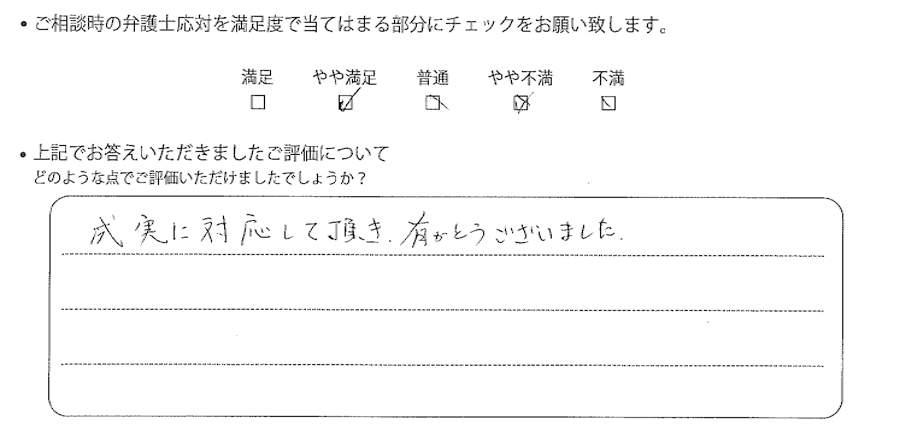 • ご相談時の弁護士応対を満足度で当てはまる部分にチェックをお願い致します。
満足 やや満足 普通 やや不満 不満
• 上記でお答えいただきましたご評価について
どのような点でご評価いただけましたでしょうか？
成実に対応して頂き、有がとうございました。